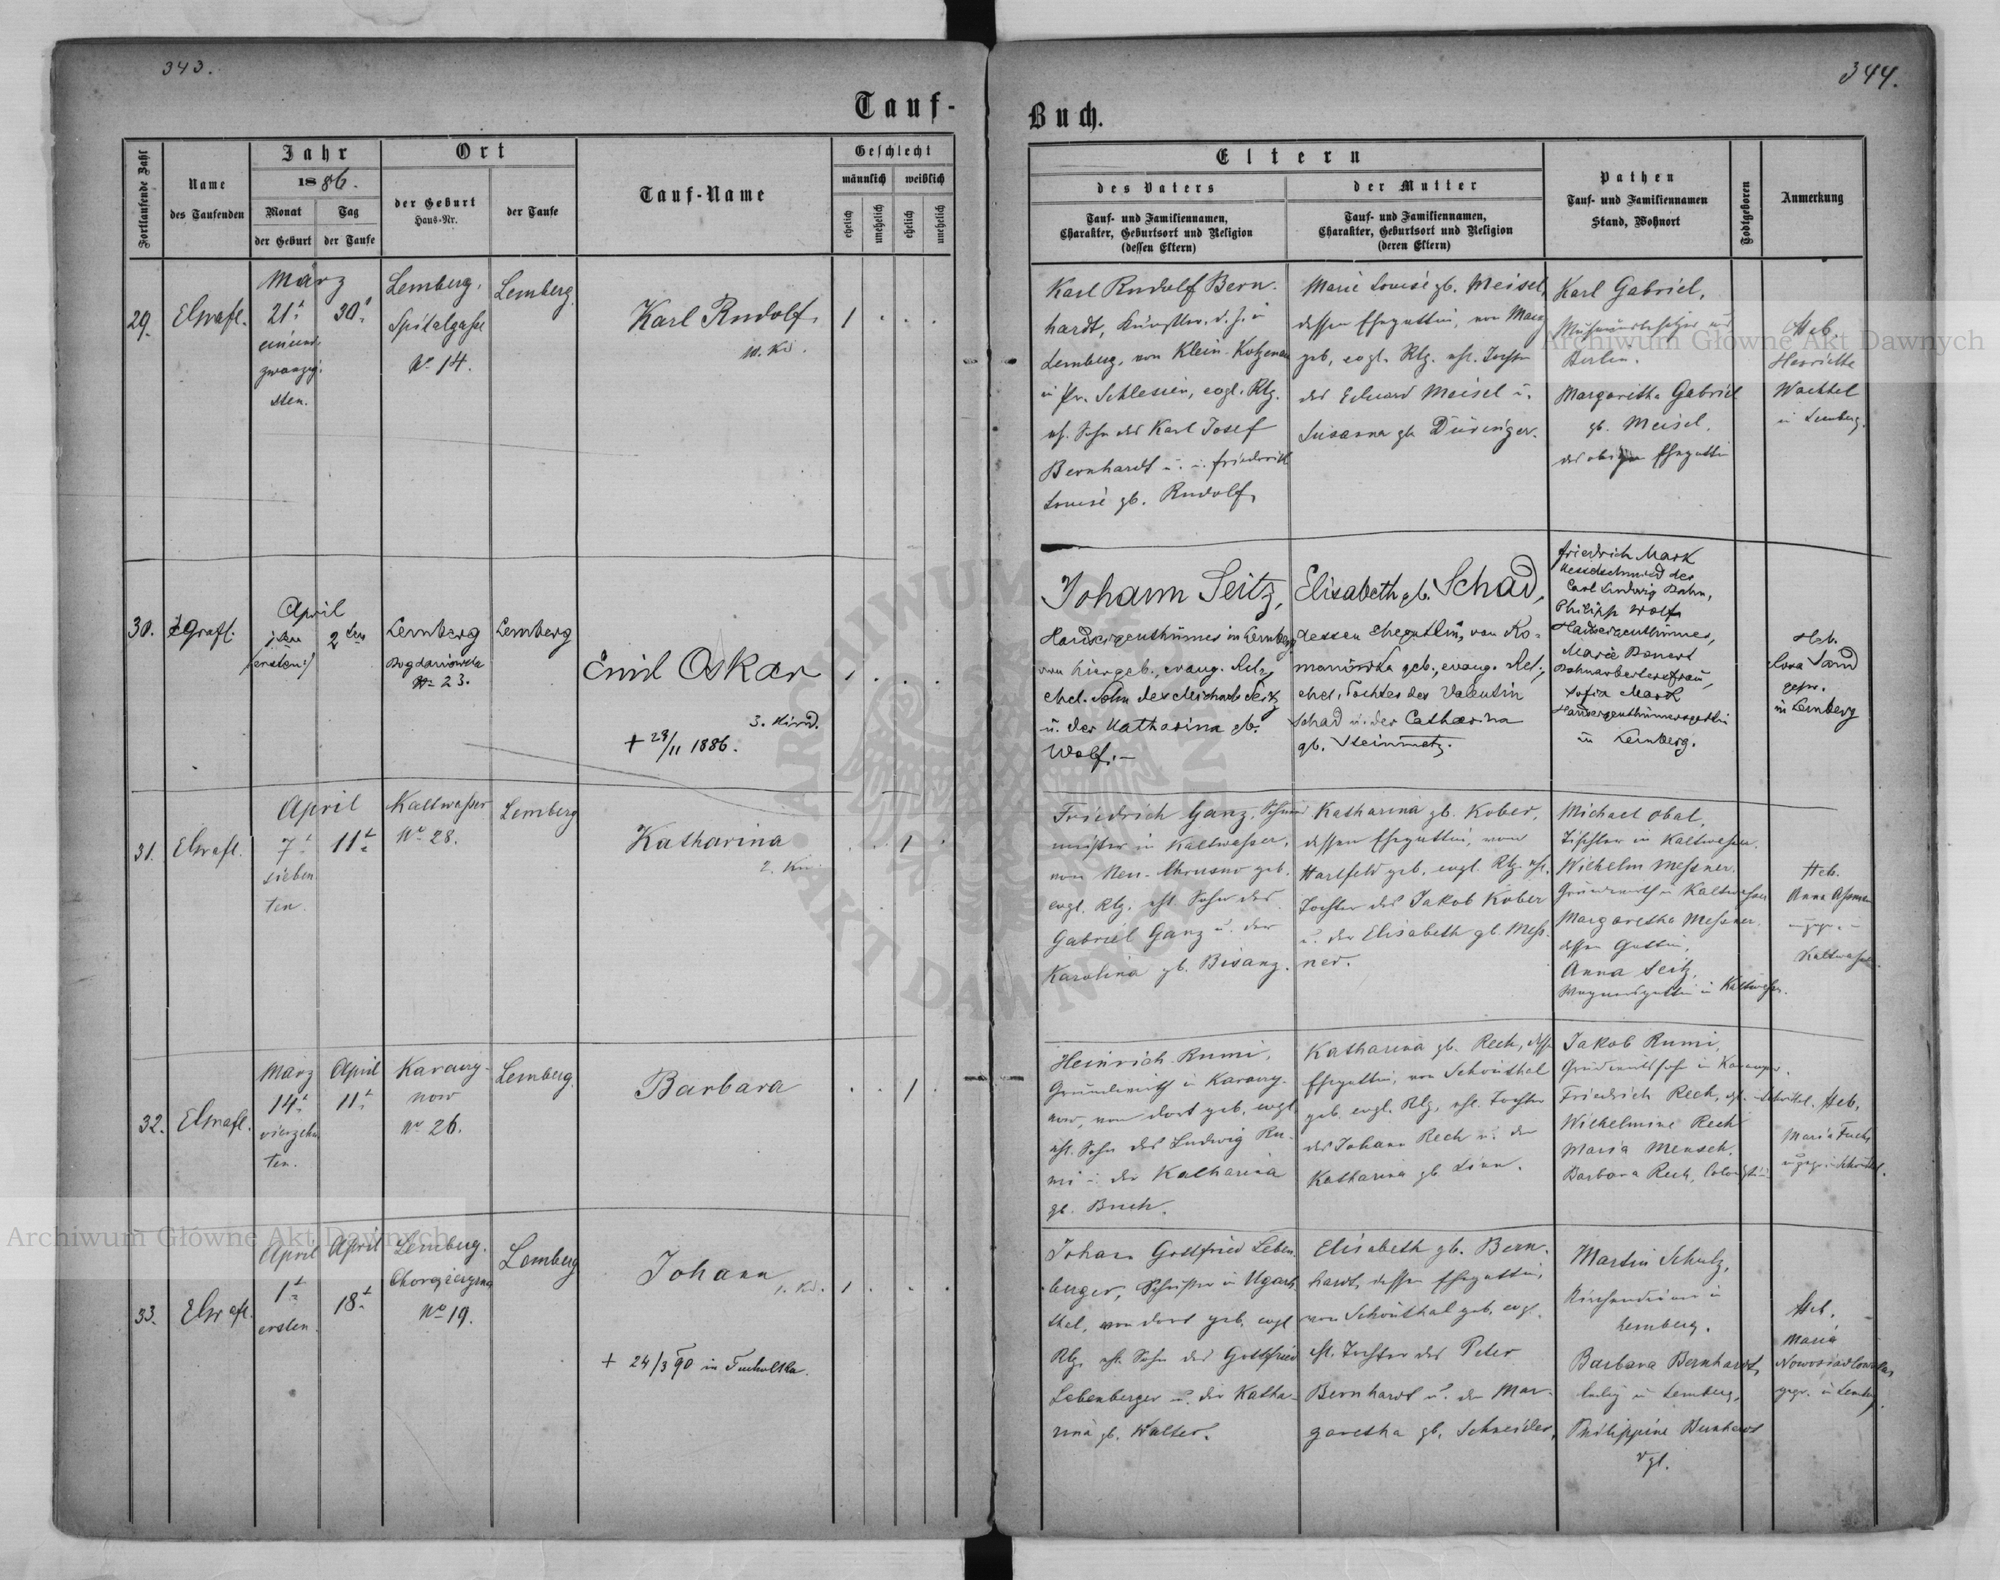 343.
344.
Tauf-
Buch.
Fortlaufende Zahl
Name
des Taufenden
Jahr
1886.
Monat
Tag
der Geburt
der Taufe
Ort
der Geburt
Haus-Nr.
der Taufe
Tauf-Name
Geschlecht
männlich
weiblich
ehelich
unehelich
ehelich
unehelich
Eltern
des Vaters
Tauf- und Familiennamen,
Charakter, Geburtsort und Religion
(dessen Eltern)
der Mutter
Tauf- und Familiennamen,
Charakter, Geburtsort und Religion
(deren Eltern)
Pathen
Tauf- und Familiennamen
Stand, Wohnort
Todtgeboren
Anmerkung
29.
März
21t
30t
einund
zwanzig-
sten.
Lemberg.
Spitalgasse
No 14.
Lemberg.
Karl Rudolf.
1
Karl Rudolf Bern-
hardt, Künstler, d. z. in
Lemberg, von Klein-Kotzenau
in Pr. Schlesien, evgl. Rlg.
eh. Sohn des Karl Josef
Bernhardt u. Friederike
Louise gb. Rudolf.
Marie Louise gb. Meisel,
dessen Ehegattin, von
geb., evgl. Rlg. eh. Tochter
des Eduard Meisel u.
Susanna gb. Düringer.
Karl Gabriel,
Berlin.
Margaretha Gabriel
gb. Meisel,
Heb.
Henriette
Waettel
in Lemberg.
30.
April
ersten
2ten
Lemberg
Bogdanówka
No 23.
Lemberg
Emil Oskar
3. Kind.
+ 28/11 1886.
1
Johann Seitz,
Hauseigenthümer in Lemberg
geb., evang. Rel.,
ehel. Sohn des Michael Seitz
u. der Katharina gb.
Wolf.-
Elisabeth gb. Schad,
dessen Ehegattin, von Ko-
marówka geb., evang. Rel.,
ehel. Tochter des Valentin
Schad u. der Catharina
gb. Steinmetz.
Friedrich Mark
Kesselschmied der
Carl Ludwig Bahn,
Philipp Wolf
Hauseigenthümer,
Marie Bonert
Bahnarbeitersfrau,
Sofia Mark
Hauseigenthümersgattin
in Lemberg.
Heb.
Rosa Sand
gepr.
in Lemberg
31.
April
7t
11t
sieben
ten.
Kaltwasser
No 28.
Lemberg
Katharina
1
Friedrich Ganz,
in Kaltwasser,
von Neu-Chrusno geb.
evgl. Rlg. eh. Sohn des
Gabriel Ganz u. der
Karolina gb. Bisanz.
Katharina gb. Kober,
dessen Ehegattin, von
Hartfeld geb., evgl. Rlg. eh.
Tochter des Jakob Kober
u. der Elisabeth gb. Mess-
ner.
Michael Obal,
Tischler in Kaltwasser.
Wilhelm Messner.
Grundwirth in Kaltwasser
Margaretha Messner
dessen Gattin,
Anna Seitz,
Wagnersgattin in Kaltwasser.
Heb.
Anna
Kaltwasser.
32.
März
14t
vierzehn
ten.
April
11t
Karaczy-
now
No 26.
Lemberg.
Barbara
1
Heinrich Rumi,
Grundwirth in Karaczy-
now, von dort geb. evgl.
eh. Sohn des Ludwig Ru-
mi u. der Katharina
gb. Buch.
Katharina gb. Rech, dess.
Ehegattin, von Schönthal
geb. evgl. Rlg. eh. Tochter
des Johann Rech u. der
Katharina gb. Linn.
Jakob Rumi,
Friedrich Rech,
Wilhelmine Rech
Maria Mensch.
Barbara Rech,
Heb.
Maria Fuchs
33.
April
1t
ersten
April
18t
Lemberg.
No 19.
Lemberg
Johann
1. Kd.
+ 24/3 90 in Tucholka.
1
Johann Gottfried Leben-
berger, in Ugarts-
thal, von dort geb. evgl.
Rlg. eh. Sohn des Gottfried
Lebenberger u. der Katha-
rina gb. Walter.
Elisabeth gb. Bern-
hardt, dessen Ehegattin,
von Schönthal geb. evgl.
eh. Tochter des Peter
Bernhardt u. der Mar-
garetha gb. Schneider.
Martin Schulz,
Kirchendiener in
Lemberg.
Barbara Bernhardt,
ledig in Lemberg,
Philippine Bernhardt
dgl.
Heb.
Maria
gepr. in Lemberg.
Archiwum Główne Akt Dawnych
Archiwum Główne Akt Dawnych